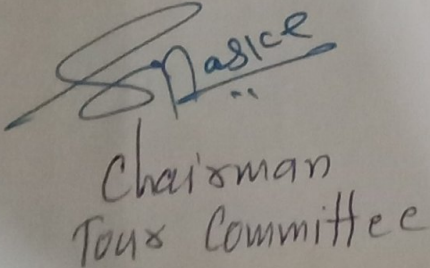 Chairman
Tour Committee